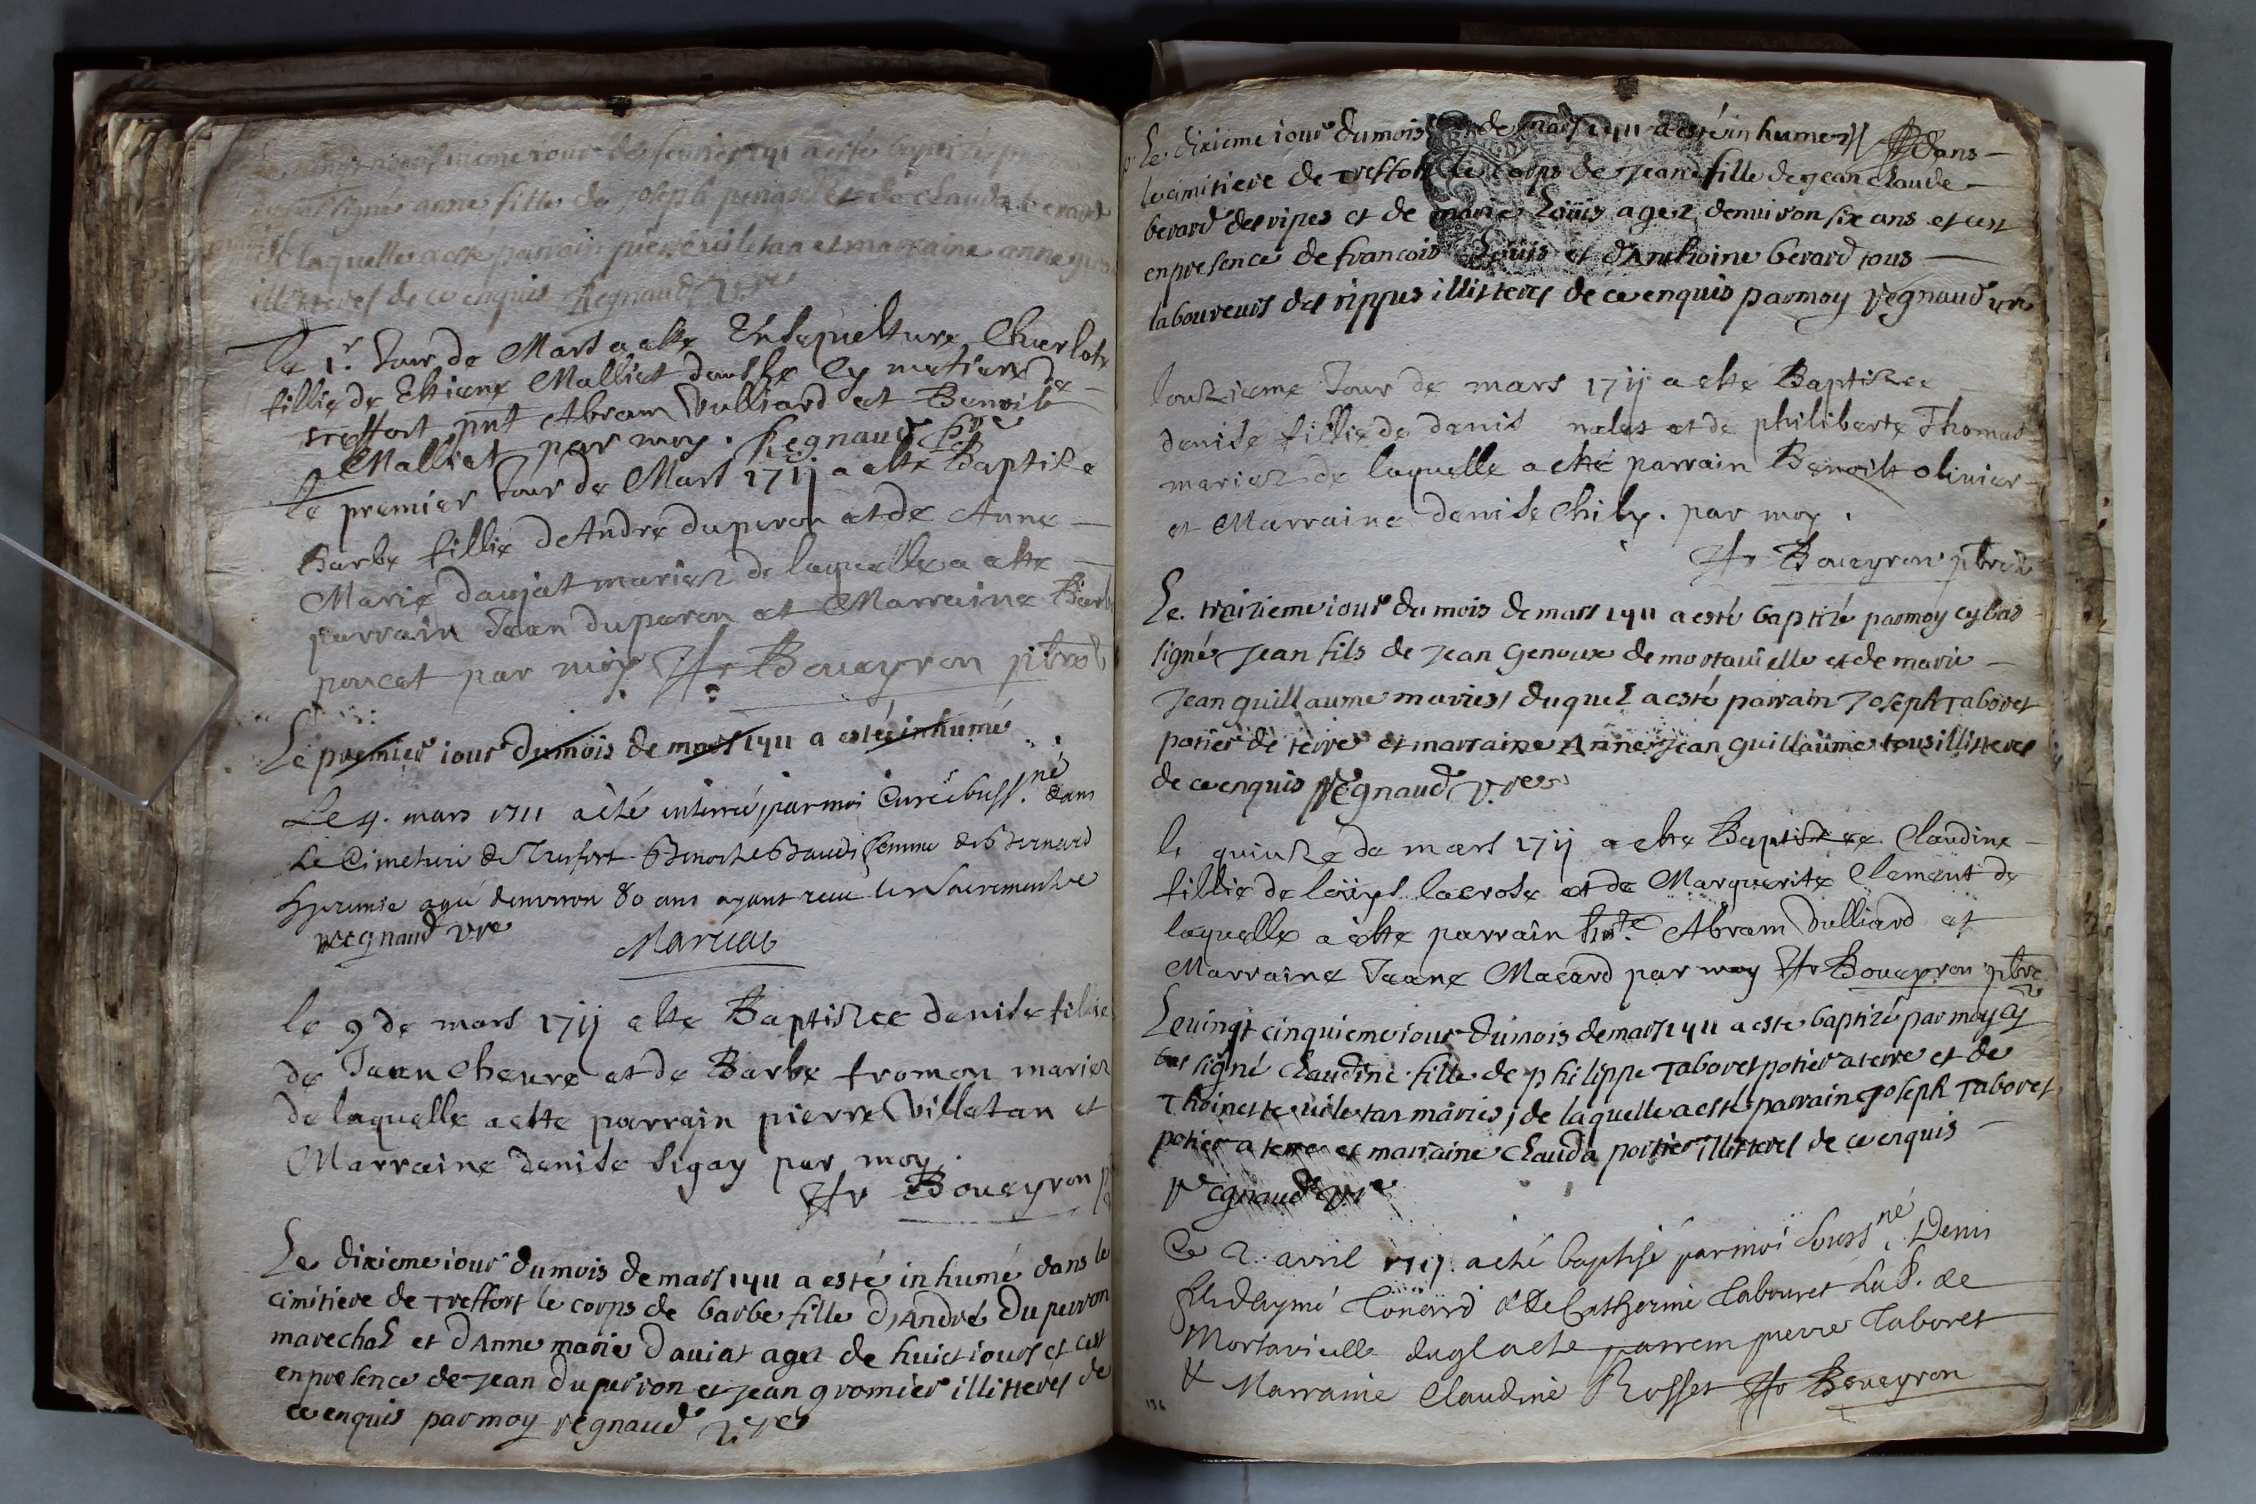 iour de feurier 1711 a esté baptizé
signé anne fille de Joseph et de Clauda
laquelle a esté parrain pierre uiletan et marraine anne
illitteres de ce enquis Regnaud vre
le 1.r Jour de Mars a este Ensepuelture Charlote
fillie de Etiene Malliet dans le Cymetiere de
treffort pnt Abram Vulliard et Benoist
Malliet par moy. Regnaud vre
le premier Jour de Mars 1711 a este Baptisee
Barbe fillie deAndre duperon et de Anne
Marie daujat mariez de laquelle a este
parrain Jean duperon et Marraine Barbe
poncet par moy Boueyron pbre
Le premier iour du mois de mars 1711 a esté inhumé
Le 4. mars 1711 a été enterré par moi Curé soubss.né dans
Le Cimetiere de Treffort Benoite Baudi femme de Bernard
agée denviron 80 ans ayant receu les Sacrements
Regnaud vre Marciat
le 9 de mars 1711 este Baptisee denise fillie
de Jean Cheure et de Barbe fromon mariez
de laquelle a este parrain pierre Villetan et
Marraine denise Sigay par moy.
Boueyron
Le dixieme iour du mois de mars 1711 a esté inhumé dans le
cimitiere de Treffort le corps de barbe fille d'André du perron
marechal et d'Anne marie dauiat agez de huict iours et cest
en presence de Jean du perron et Jean gromier illitteres de
ce enquis par moy regnaud vre
Le dixieme iour du mois de mars 1711 a esté inhumez dans
le cimitiere de Treffort le corps de Jeane fille de Jean Claude
berard des ripes et de marie Loüis agez denuiron six ans et cest
en presence de francois Loüis et d'Anthoine berard tous
laboureurs des rippes illitteres de ce enquis par moy regnaud vre
lonzieme Jour de mars 1711 a este Baptisee
denise fillie de denis nales et de philiberte Thomas
mariez de laquelle a esté parrain Benoist olivier
et Marraine denise Chily. par moy.
Boueyron pbre
Le treizieme iour du mois de mars 1711 a esté baptizé par moy cy bas
signé Jean fils de Jean Genoux de mortauielle et de marie
Jean guillaume maries duquel a esté parrain Joseph Taboret
potier de terre et marraine Anne Jean guillaume tous illitteres
de ce enquis Regnaud vre
le quinze de mars 1711 a este Baptisee Claudine
fillie de loüys lacrose et de Marguerite Clement de
laquelle a este parrain hste Abram Vulliard et
Marraine Jeane Macard par moy Boueyron pbre
Le vingt cinquieme iour du mois de mars 1711 a este baptizé par moy cy
bas signé Claudine fille de philippe Taboret potier a terre et de
Thoinette uiletan maries, de laquelle a esté parrain Joseph Taboret
potier a terre et marraine Clauda portier illitteres de ce enquis
Regnaud vre
Le 2. avril 1711. a été baptisé par moi souss.né Denis
fils daymé Tonerd & de Catherine Tabouret Lab. de
Mortavielle duql a ete parrein pierre Taboret
& Marraine Claudine Rosset Boueyron
136